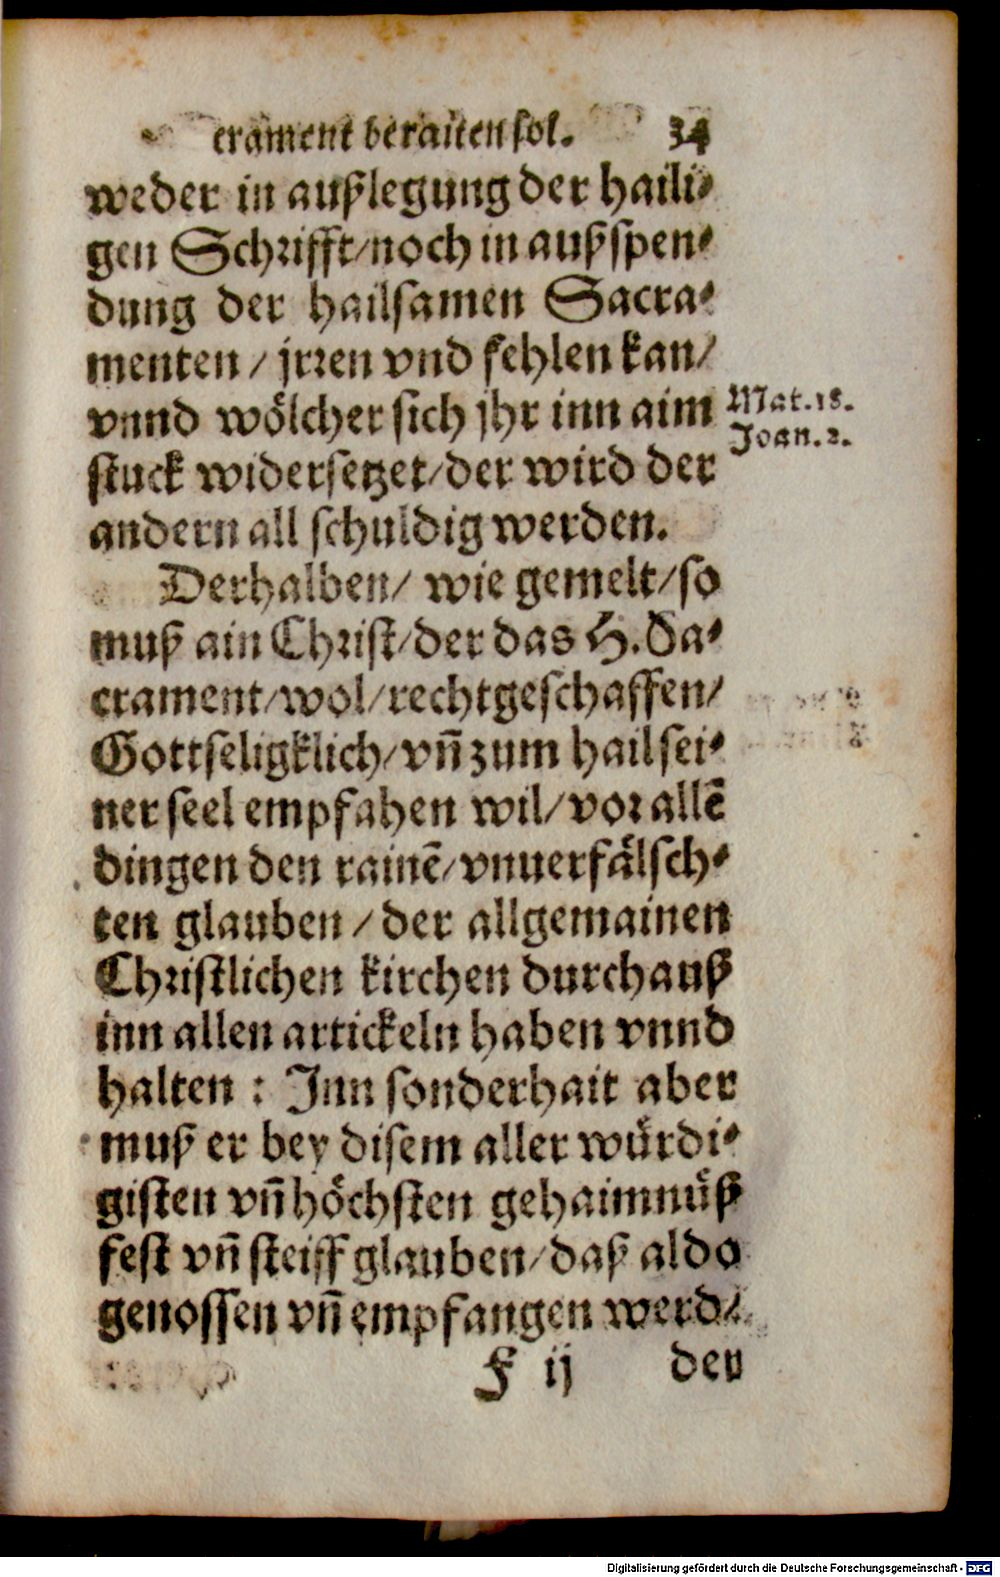 crament beraiten sol. 34
weder in außlegung der haili⸗
gen Schrifft/ noch in außspen⸗
dung der hailsamen Sacra⸗
menten / jrren vnd fehlen kan/
vnnd wölcher sich jhr inn aim
Mat. 18.
Joan. 2.
stuck widersetzet/ der wird der
andern all schuldig werden.
Derhalben/ wie gemelt/ so
muß ain Christ/ der das H. Sa⸗
crament/ wol/ rechtgeschaffen/
Gottseligklich/ vñ zum hail sei⸗
ner seel empfahen wil/ vor allē
dingen den rainē/ vnuerfälsch⸗
ten glauben / der allgemainen
Christlichen kirchen durchauß
inn allen artickeln haben vnnd
halten : Inn sonderhait aber
muß er bey disem aller würdi⸗
gisten vñ höchsten gehaimnüß
fest vñ steiff glauben/ daß aldo
genossen vñ empfangen werd/
F ij den
Digitalisierung gefördert durch die Deutsche Forschungsgemeinschaft - DFG